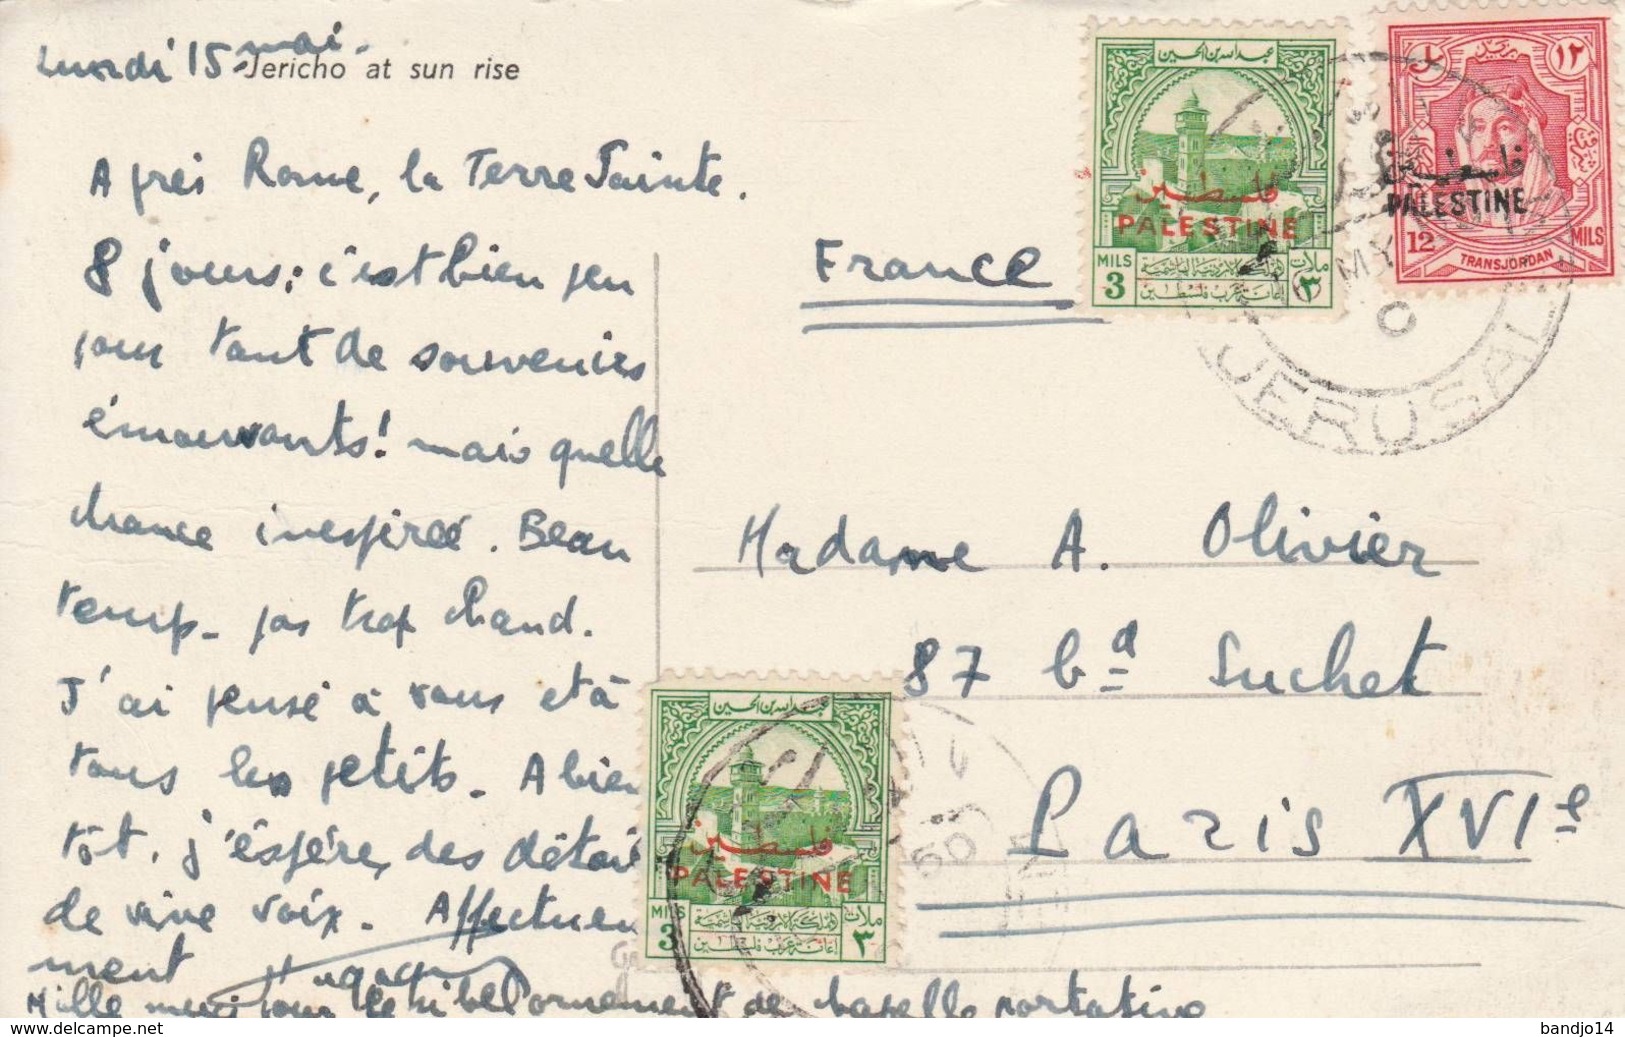 Lundi 15 mai.
Jericho at sun rise
Après Rome, la Terre Sainte.
8 jours; c'est bien peu
pour tant de souvenirs
émouvants! mais quelle
chance inespérée. Beau
temps - pas trop chaud.
J'ai pensé à vous et à
tous les petits - A bien
tôt, j'espère, des détails
de vive voix. Affectueu
ment
Mille merci pour le si bel ornement de chapelle portative
France
Madame A. Olivier
87 bd Suchet
Paris XVIe
عبد الله بن الحسين
فلسطين
PALESTINE
MILS
3
ملات
٣
المملكة الاردنية الهاشمية
إعانة عرب فلسطين
١٢
فلسطين
PALESTINE
12
MILS
TRANSJORDAN
JERUSAL
عبد الله بن الحسين
فلسطين
PALESTINE
MILS
3
ملات
٣
المملكة الاردنية الهاشمية
إعانة عرب فلسطين
50
www.delcampe.net
bandjo14